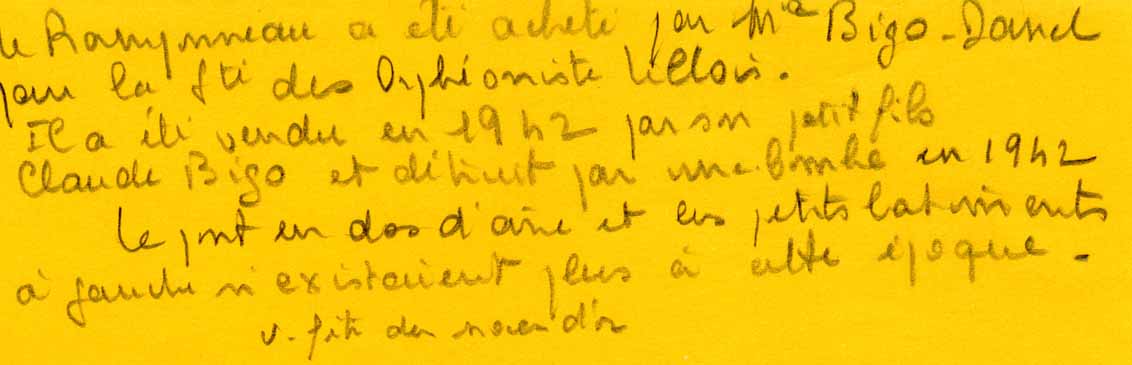 le Ramponneau a été acheté par Mr Bigo-Danel
pour la fté des Orphéoniste Lillois.
Il a été vendu en 1942 par son petit fils
Claude Bigo et détruit par une bombe en 1942
Le pont en dos d'âne et les petits batiments
à gauche n'existaient plus à cette époque.
v. fête des noces d'or